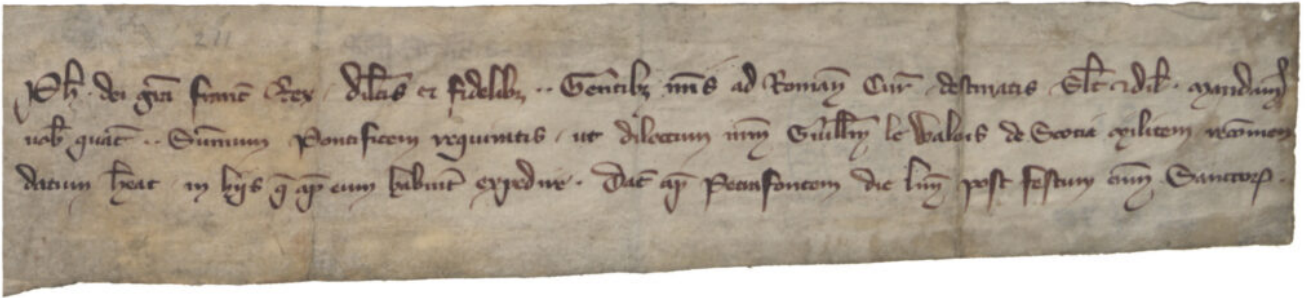 211
Ph. dei gra franc Rex dilcis et fidelibz .. Gentibz nris ad Romam Cur destinatis Salt & dil. mandam
vob quat .. Summum Pontificem requiratis ut dilectum nrm Guillm le Walois de Scotia militem recomen
datum heat in hiis q ap eum habuit expedire. Dat ap Petrafontem die lun post festum omn Sanctor.